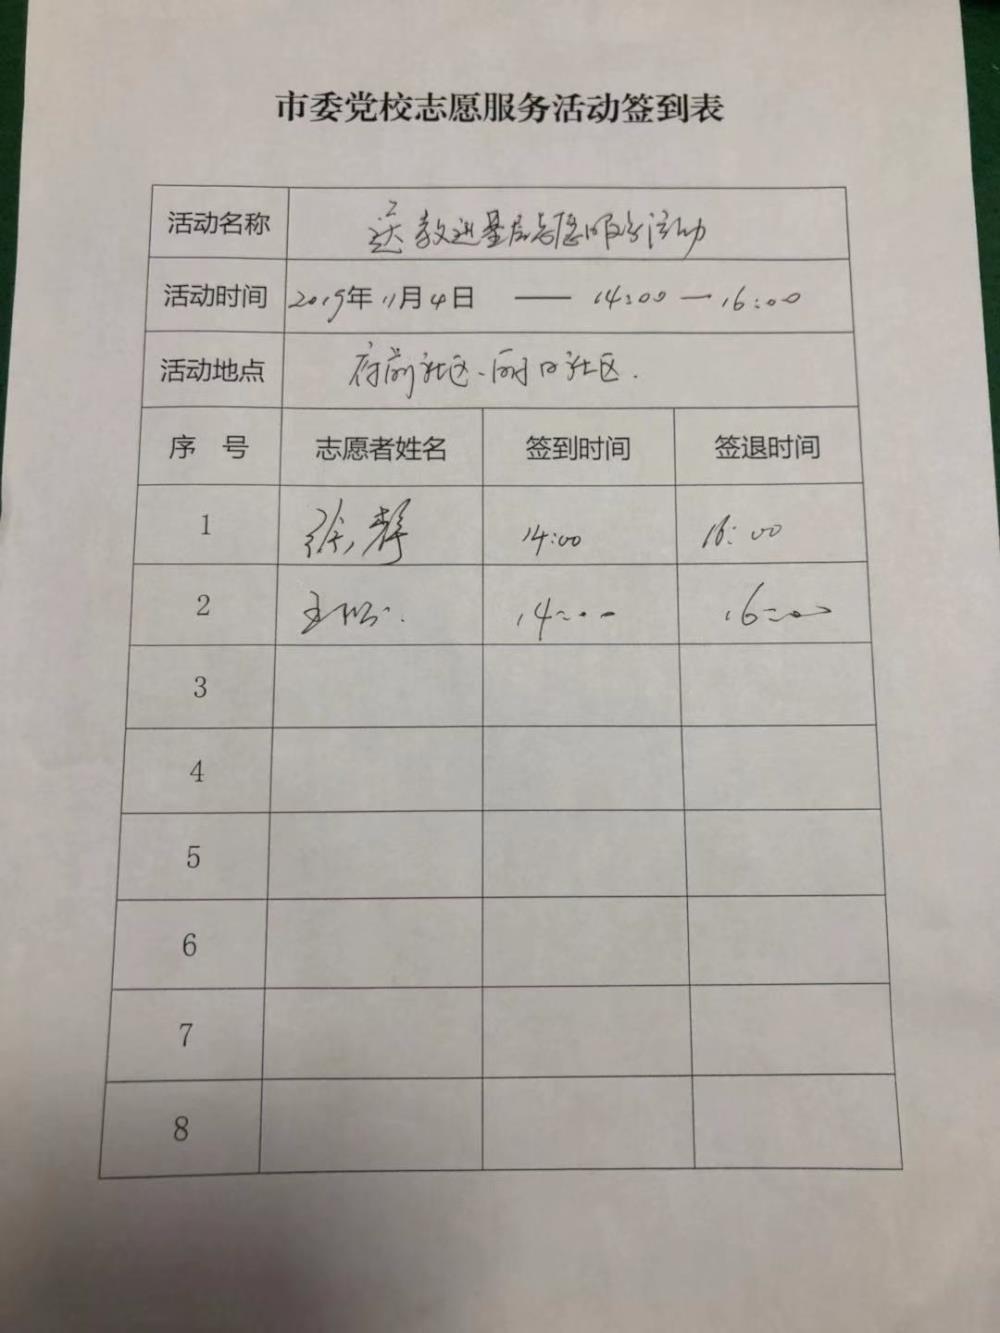 市委党校志愿服务活动签到表
活动名称 送教进基层志愿服务活动
活动时间 2019年11月4日 —— 14:00 — 16:00
活动地点 府前社区、河口社区.
序 号 志愿者姓名 签到时间 签退时间
1 张静 14:00 16:00
2 王 14:00 16:00
3
4
5
6
7
8